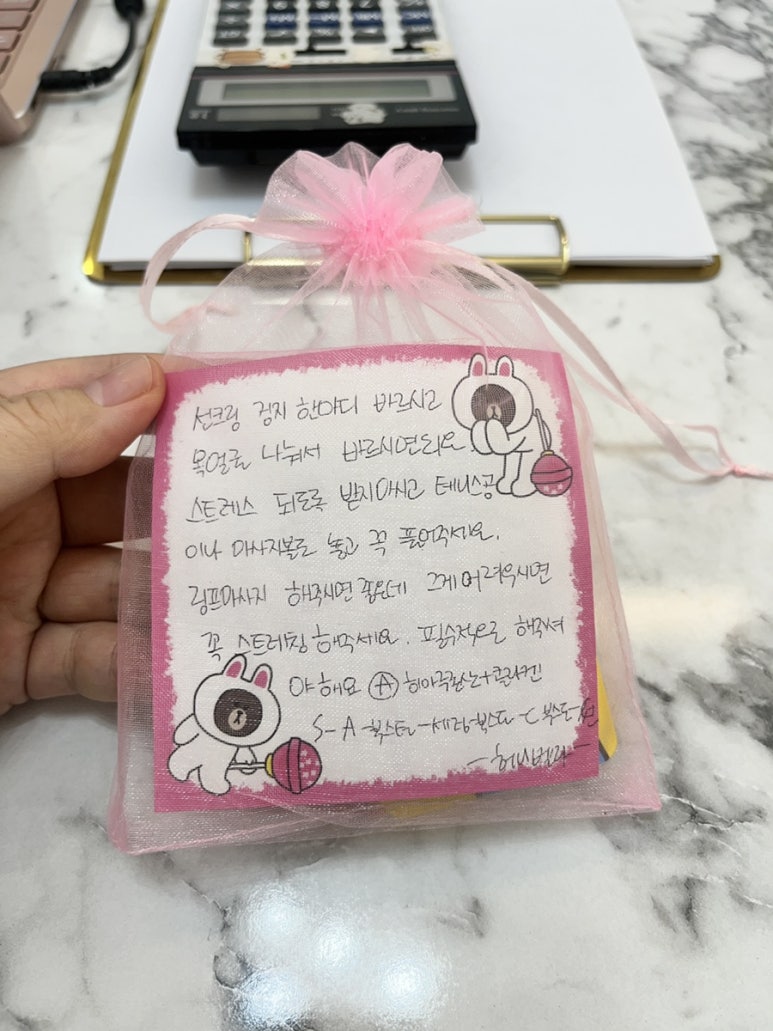 선크림 검지 한마디 바르시고
목얼굴 나눠서 바르시면되요.
스트레스 되도록 받지마시고 테니스공
이나 마사지볼로 놓고 꼭 풀어주세요.
림프마사지 해주시면 좋은데 그게 어려우시면
꼭 스트레칭 해주세요. 필수적으로 해주셔
야 해요 Ⓐ 히아루론+콜라겐
S-A 부스터-세럼부스터-C 부스터